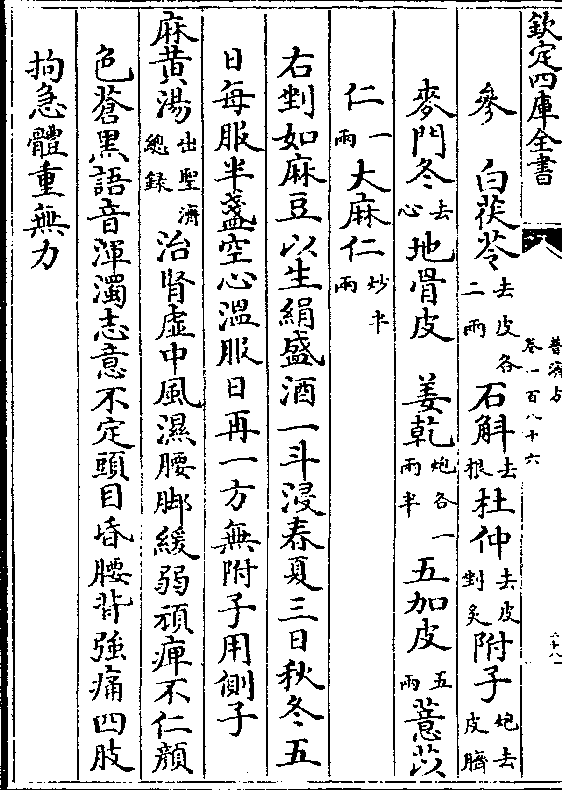 欽定四庫全書
普濟方
卷一百八十六
參　白茯苓去皮各二兩石斛去根杜仲去皮剉炙附子炮去皮臍
麥門冬去心地骨皮　姜乾炮各一兩半五加皮五兩薏苡
仁一兩大麻仁炒半兩
右剉如麻豆以生絹盛酒一斗浸春夏三日秋冬五
日每服半盞空心溫服日再一方無附子用側子
麻黄湯出聖濟總録治腎虛中風濕腰脚緩弱頑痺不仁顔
色蒼黑語音渾濁志意不定頭目昏腰背強痛四肢
拘急體重無力